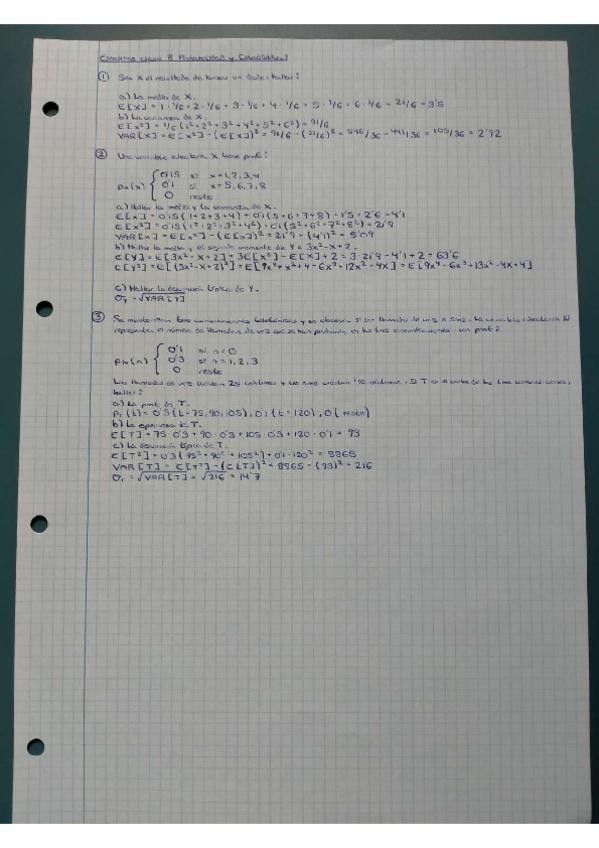 Clase 8 Probabilidad y Estadística
① Sea X el resultado de lanzar un dado, hallar:
a) La media de X.
E[X] = 1·1/6 + 2·1/6 + 3·1/6 + 4·1/6 + 5·1/6 + 6·1/6 = 21/6 = 3'5
b) La varianza de X.
E[X²] = 1/6 (1²+2²+3²+4²+5²+6²) = 91/6
VAR[X] = E[X²] - (E[X])² = 91/6 - (21/6)² = 546/36 - 441/36 = 105/36 = 2'92
② Una variable aleatoria X tiene pmf:
0'15 si x=1,2,3,4
Px(x) 0'1 si x=5,6,7,8
0 resto
a) Hallar la media y la varianza de X.
E[X] = 0'15(1+2+3+4) + 0'1(5+6+7+8) = 1'5 + 2'6 = 4'1
E[X²] = 0'15(1²+2²+3²+4²) + 0'1(5²+6²+7²+8²) = 21'9
VAR[X] = E[X²] - (E[X])² = 21'9 - (4'1)² = 5'09
b) Hallar la media y el segundo momento de Y = 3x²-x+2.
E[Y] = E[3x²-x+2] = 3E[x²] - E[x] + 2 = 3·21'9 - 4'1 + 2 = 63'6
E[Y²] = E[(3x²-x+2)²] = E[9x⁴+x²+4-6x³+12x²-4x] = E[9x⁴-6x³+13x²-4x+4]
c) Hallar la desviación típica de Y.
σy = √VAR[Y]
③ Se monitorizan tres comunicaciones telefónicas y se observa si son llamadas de voz o sms. La variable aleatoria N
representa el número de llamadas de voz que se han producido en las tres comunicaciones con pmf:
0'1 si n=0
PN(n) 0'3 si n=1,2,3
0 resto
Las llamadas de voz cuestan 25 céntimos y los sms cuestan 40 céntimos. Si T es el coste de las tres comunicaciones,
hallar:
a) La pmf de T.
PT(t) = 0'3 (t=75,90,105), 0'1 (t=120), 0 (resto)
b) La esperanza de T.
E[T] = 75·0'3 + 90·0'3 + 105·0'3 + 120·0'1 = 93
c) La desviación típica de T.
E[T²] = 0'3(75²+90²+105²) + 0'1·120² = 8865
VAR[T] = E[T²] - (E[T])² = 8865 - (93)² = 216
σT = √VAR[T] = √216 = 14'7